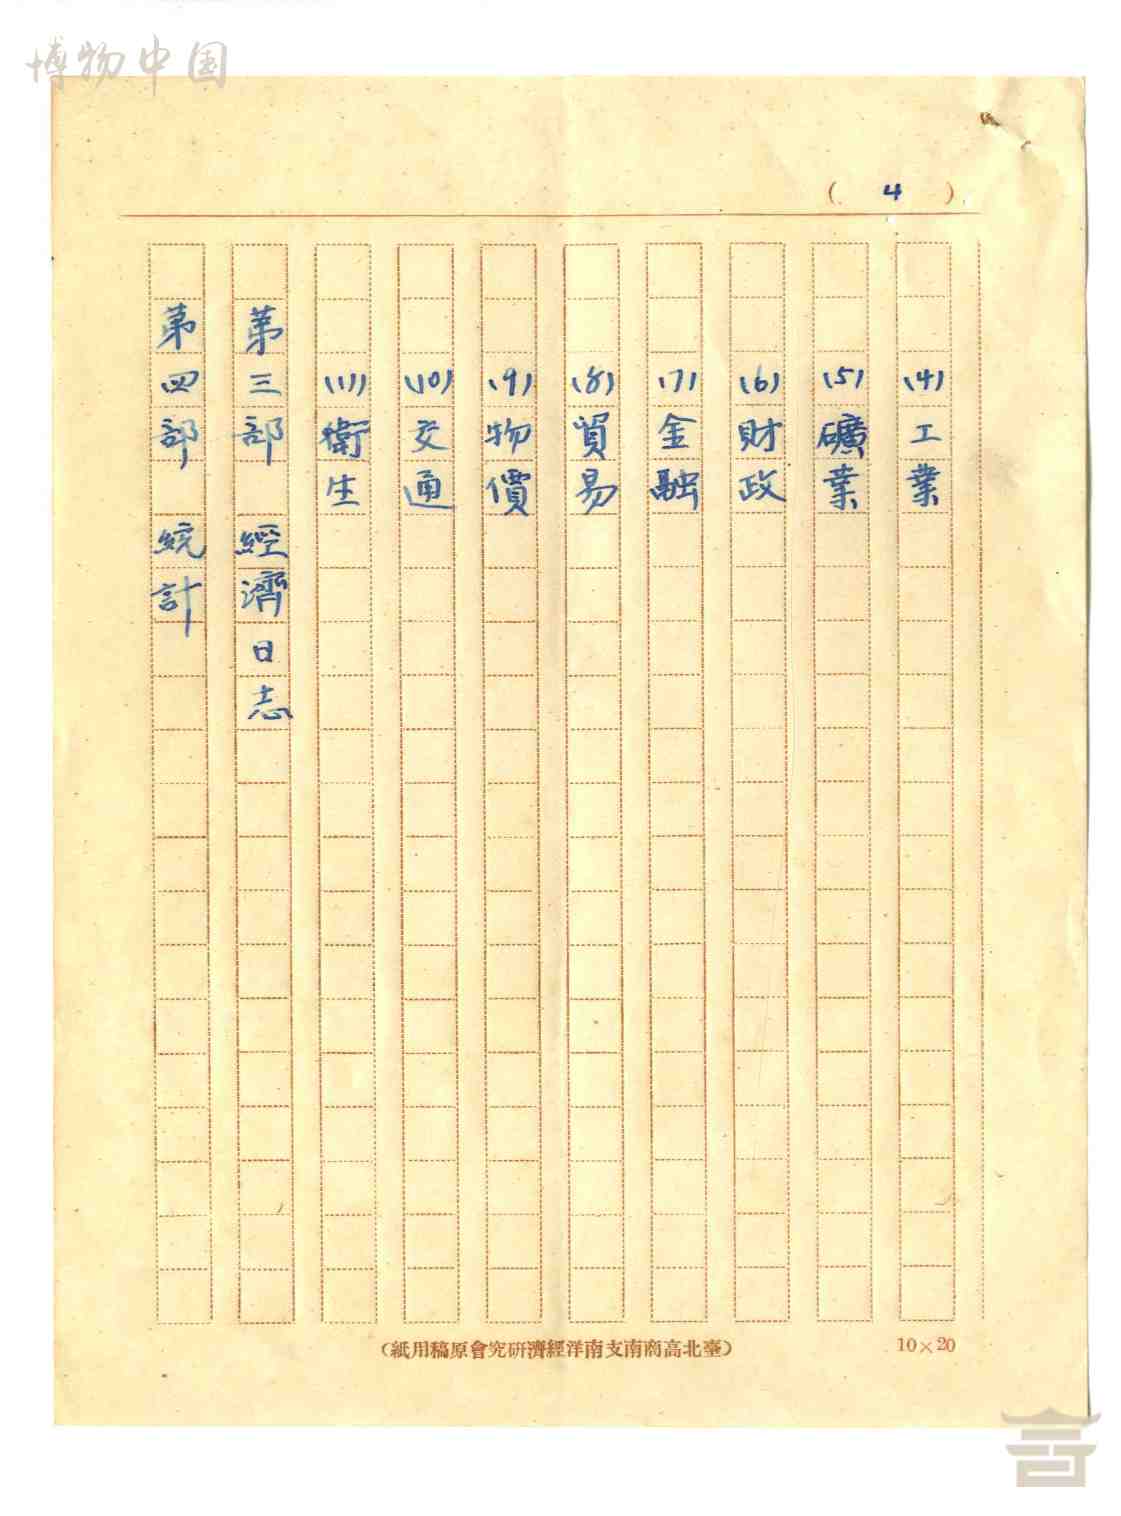 博物中国
( 4 )
(4)工業
(5)礦業
(6)財政
(7)金融
(8)貿易
(9)物價
(10)交通
(11)衛生
第三部 經濟日志
第四部 統計
(臺北高商南支南洋經濟研究會原稿用紙)
10×20